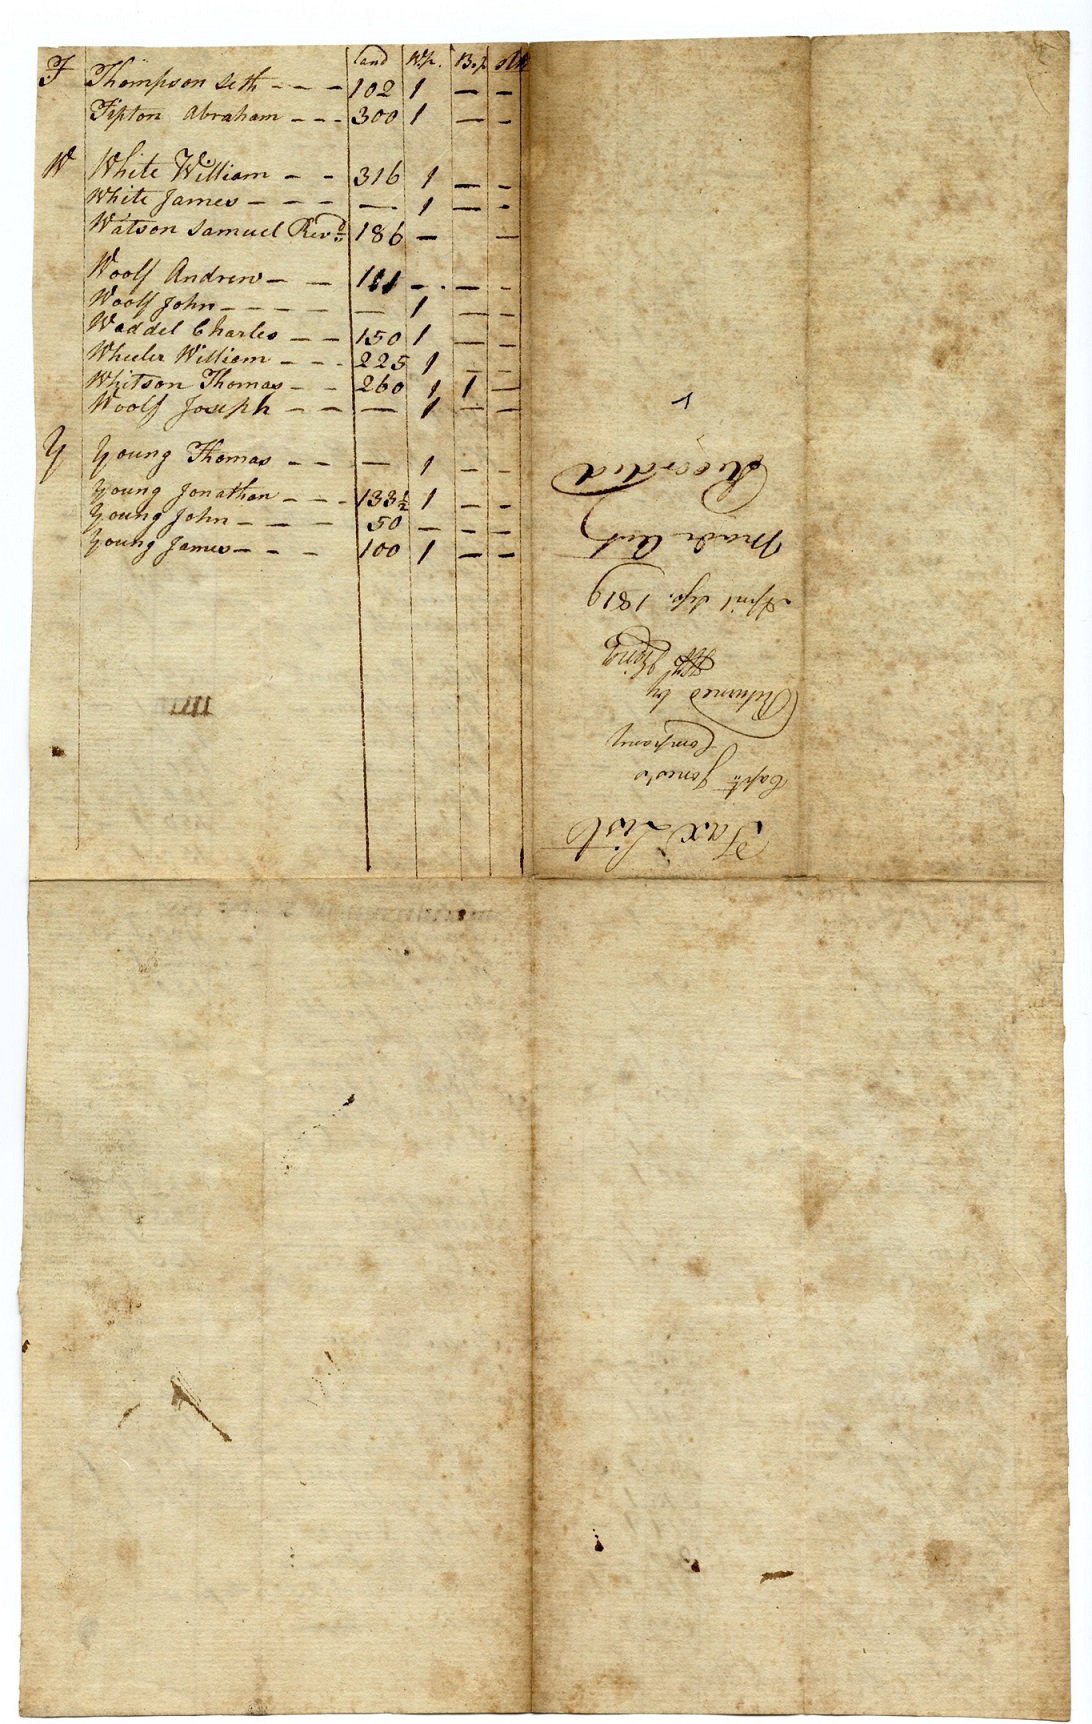 land W.p. B.p. Stk
T Thompson Seth - - - 102 1 — —
Tipton Abraham - - - 300 1 — —
W White William - - 316 1 — —
White James - - - - — 1 — —
Watson Samuel Revd. 186 — —
Woolf Andrew - - 111 - - —
Woolf John - - - - - — 1 — —
Waddel Charles - - 150 1 — —
Wheeler William - - - 225 1 — —
Whitson Thomas - - 260 1 1 —
Woolf Joseph - - - — 1 — —
Y Young Thomas - - — 1 — —
Young Jonathan - - - 133½ 1 — —
Young John - - - - 50 — — —
Young James - - - 100 1 — —
Tax List
Capt. Jones's
Company
Returned by
April Sep. 1819
Made Out
Recorded